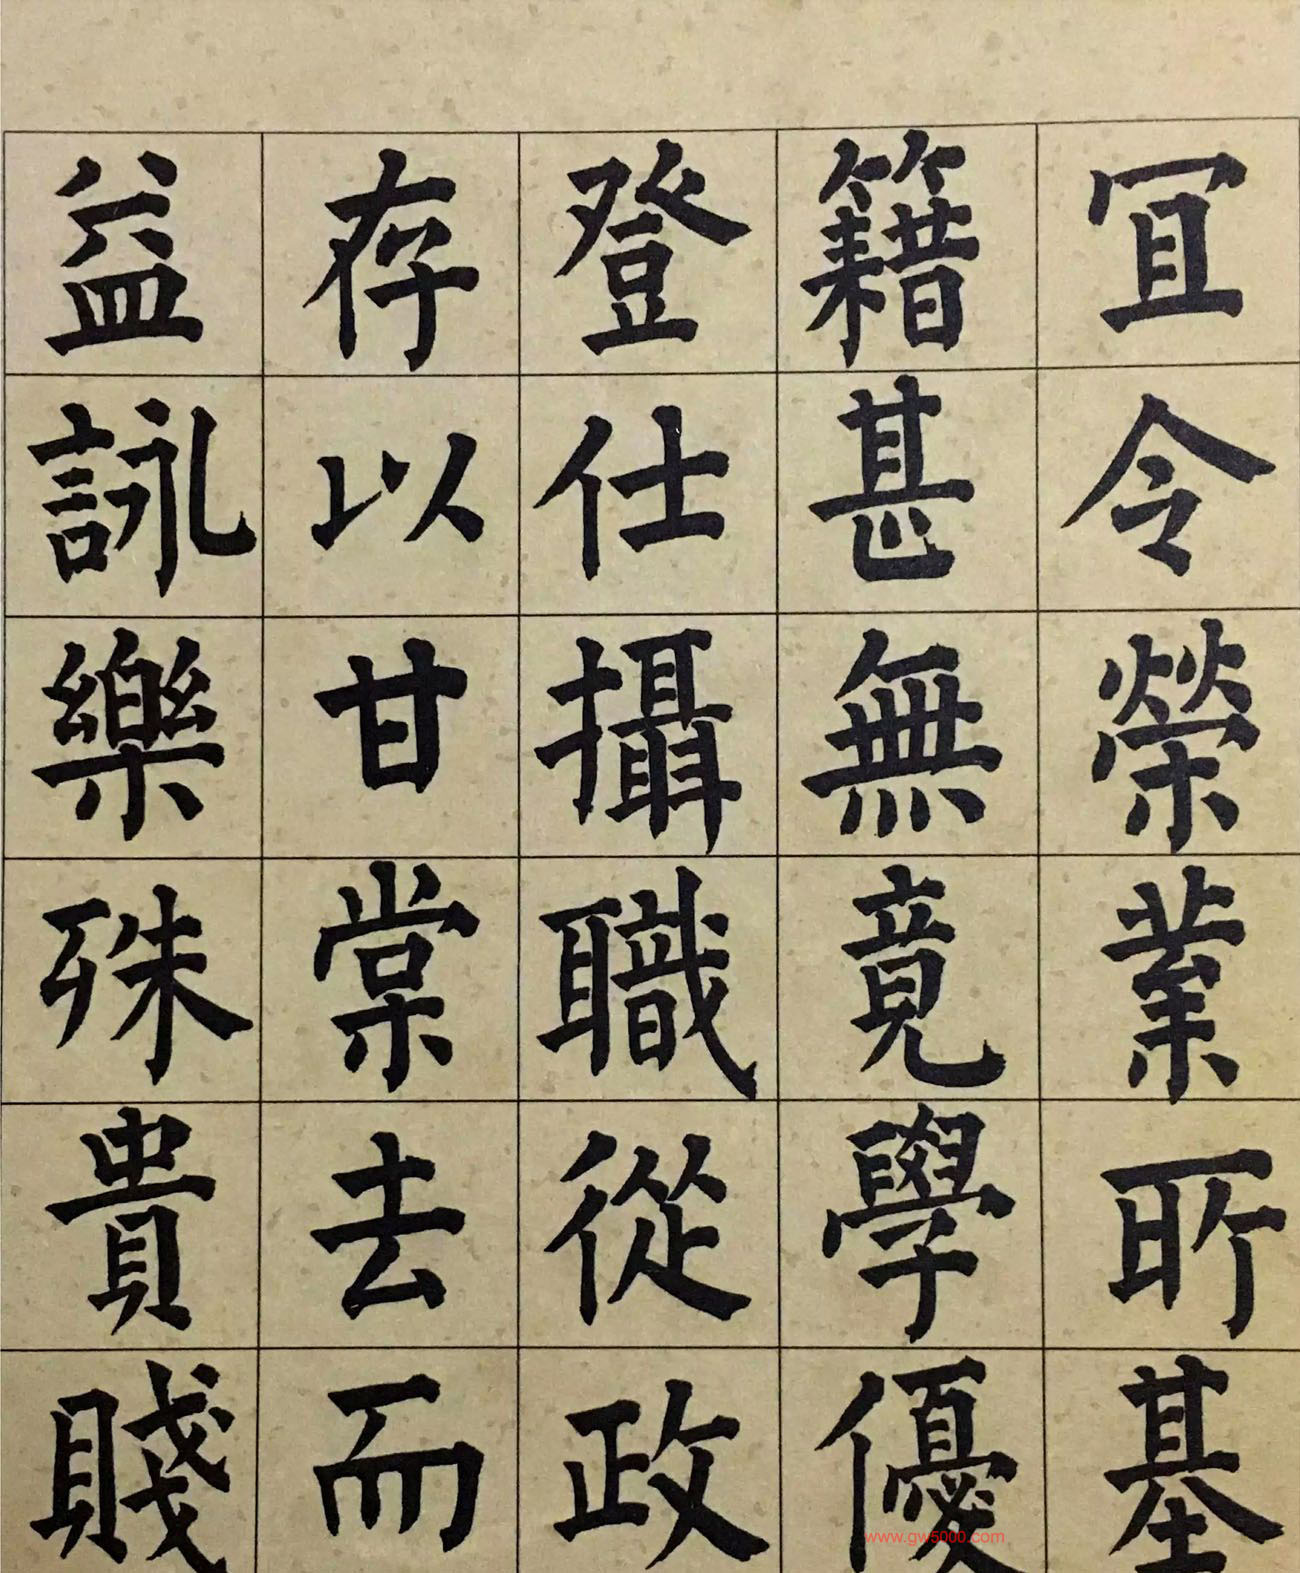 冝令榮業所基
籍甚無竟學優
登仕攝職從政
存以甘棠去而
益詠樂殊貴賤
www.gw5000.com